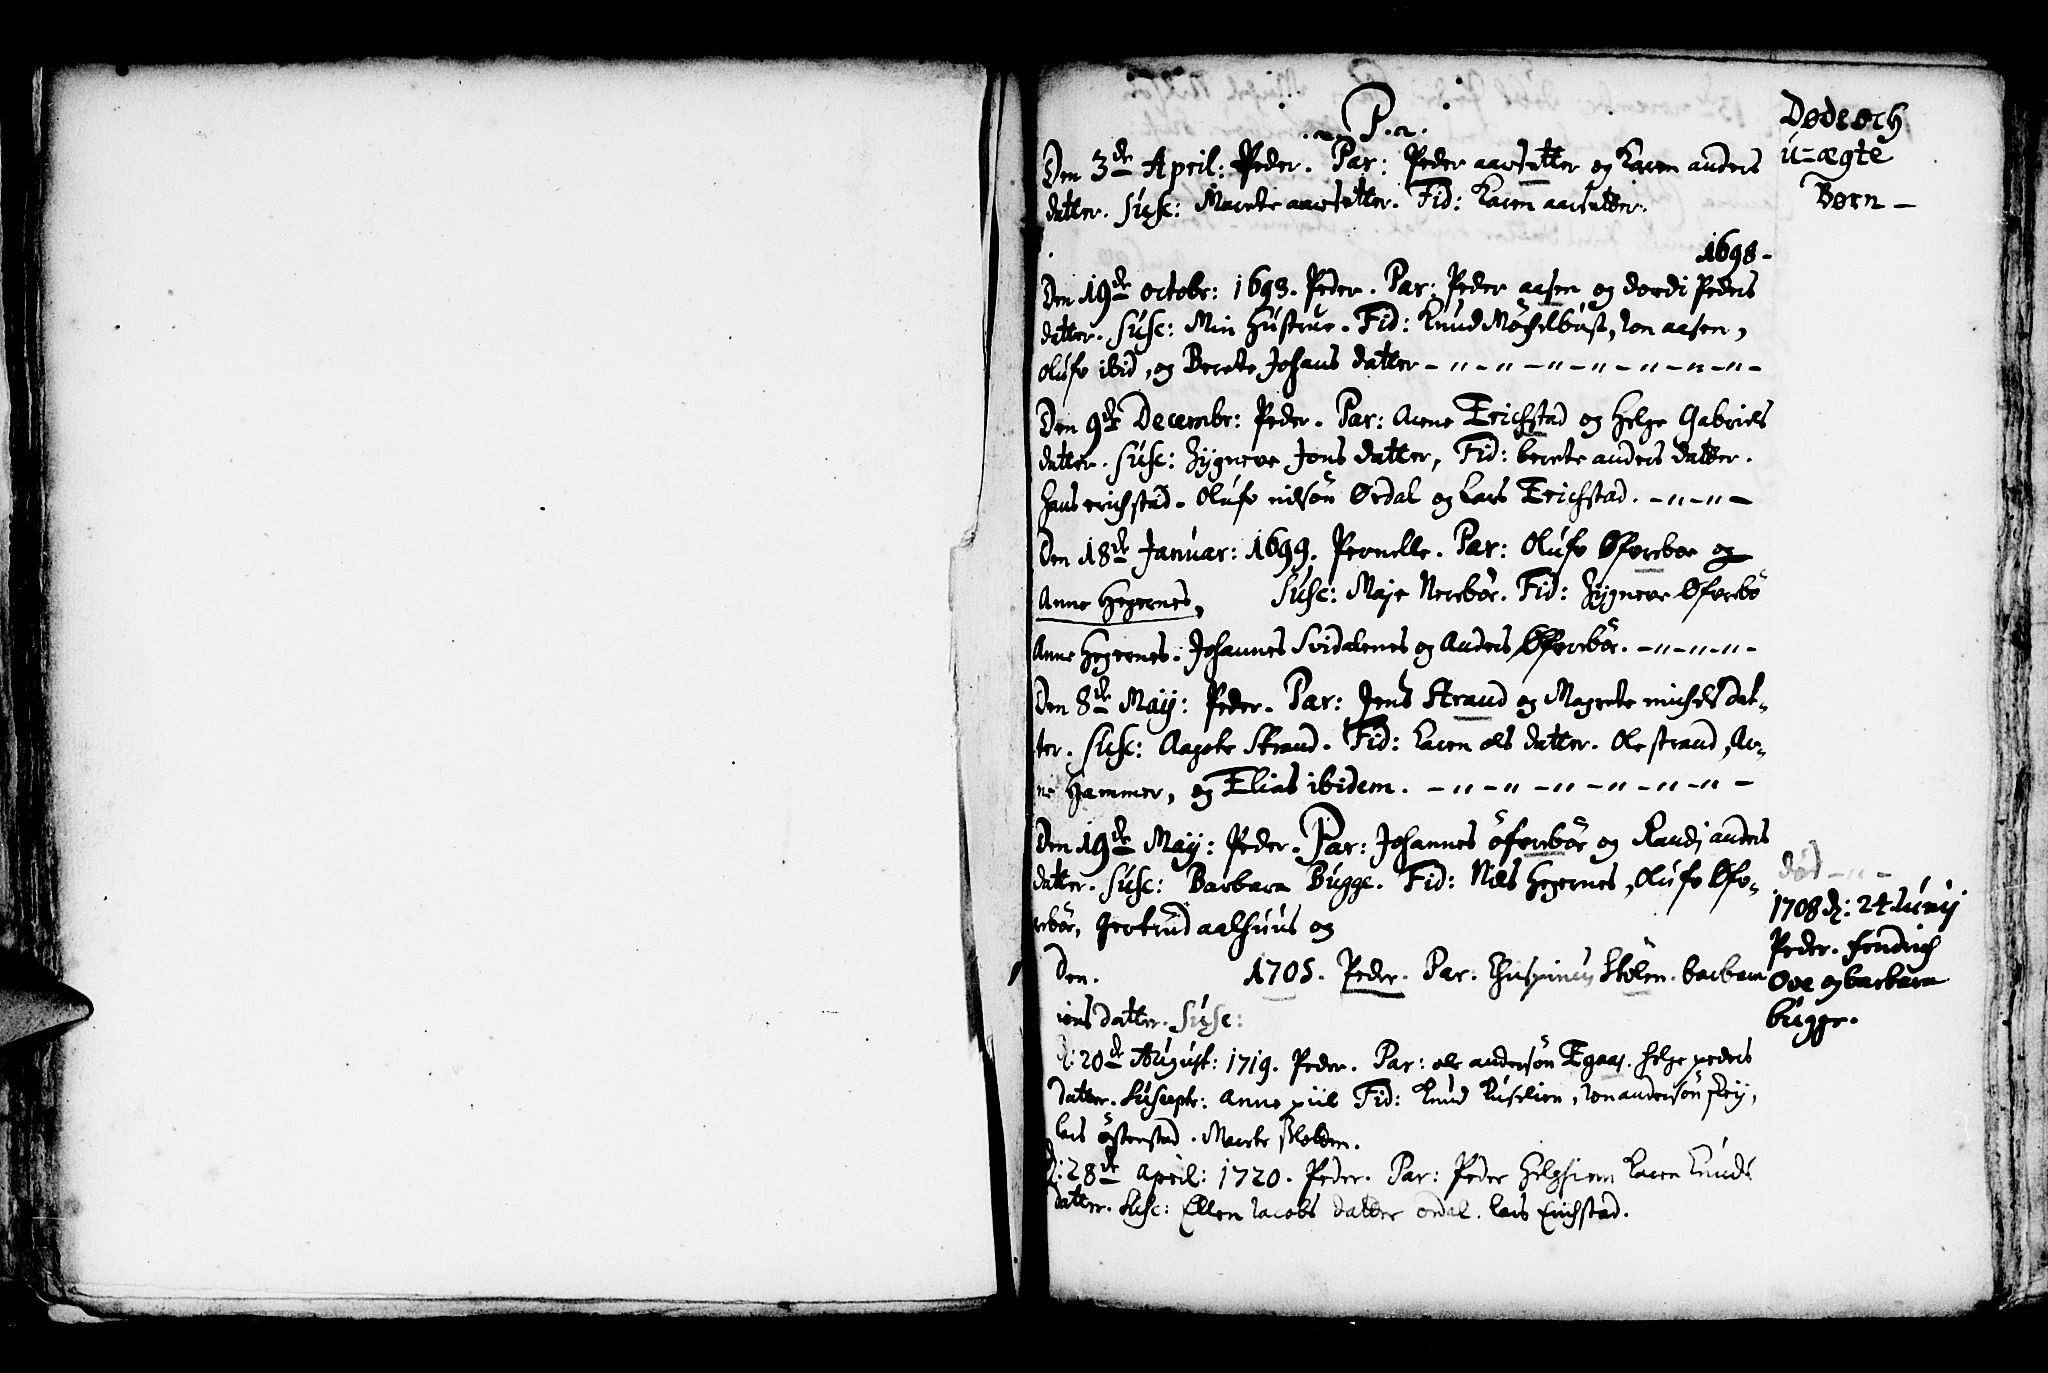 . ~ P. ~.
Den 3de April: Peder. Par: Peder aarsetter og Karen anders
datter. Susc: Marete aarsetter. Fid: Karen aarsetter.
1698 -
Den 19de octobr: 1698. Peder. Par: Peder aasen og dordi Peders
datter. Susc: Min Hustrue. Fid: Knud Møchelbust, Ion aasen,
Olufe ibid, og Berete Johans datter - " - " - " - " - " - " - " -
Den 9de Decembr: Peder. Par: Arne Erichstad og Helge Gabriels
datter. Susc: Zygneve Jons datter, Fid: berete anders datter.
Hans erichstad. Olufe nilsøn Ørdal og Lars Erichstad. - " - " -
Den 18de Januar: 1699. Pernelle. Par: Olufe Øfverboe og
Anne Hegernes, Susc: Maje Nerebør. Fid: Zygneve Øfverbø
Anne Hegernes. Johannes Svidalenes og Anders Øfverbør. - " - " - " -
Den 8de Maij: Peder. Par: Jens Strand og Magrete michels dat-
ter. Susc: Aagote Strand. Fid: Karen ols datter. Ole strand, Ar-
ne Hammer, og Elias ibidem. - " - " - " - " - " - " -
Den 19de Maij: Peder. Par: Johannes øfverbør og Randj anders
datter. Susc: Barbara Bugge. Fid: Nils Hegernes, Olufe Øfve-
rbør, Gertrud aalhuus og
Den. 1705. Peder. Par. Stølen. barbara
ions datter. Susc:
d: 20de August: 1719. Peder. Par: ole andersøn Egaas. helge peders
datter. Suscept: Anne piil Fid: Knud Ion andersøn
lars østerstad. Marete
d: 28de April: 1720. Peder. Par: Peder Helgheim Karen Knuds
datter. Susc: Ellen Iacobs datter ordal. lars Erichstad.
Døde och
u-ægte
Børn -
død - " -
1708 d: 24 Iunij
Peder. fendrich
Ove og barbara
bugge.